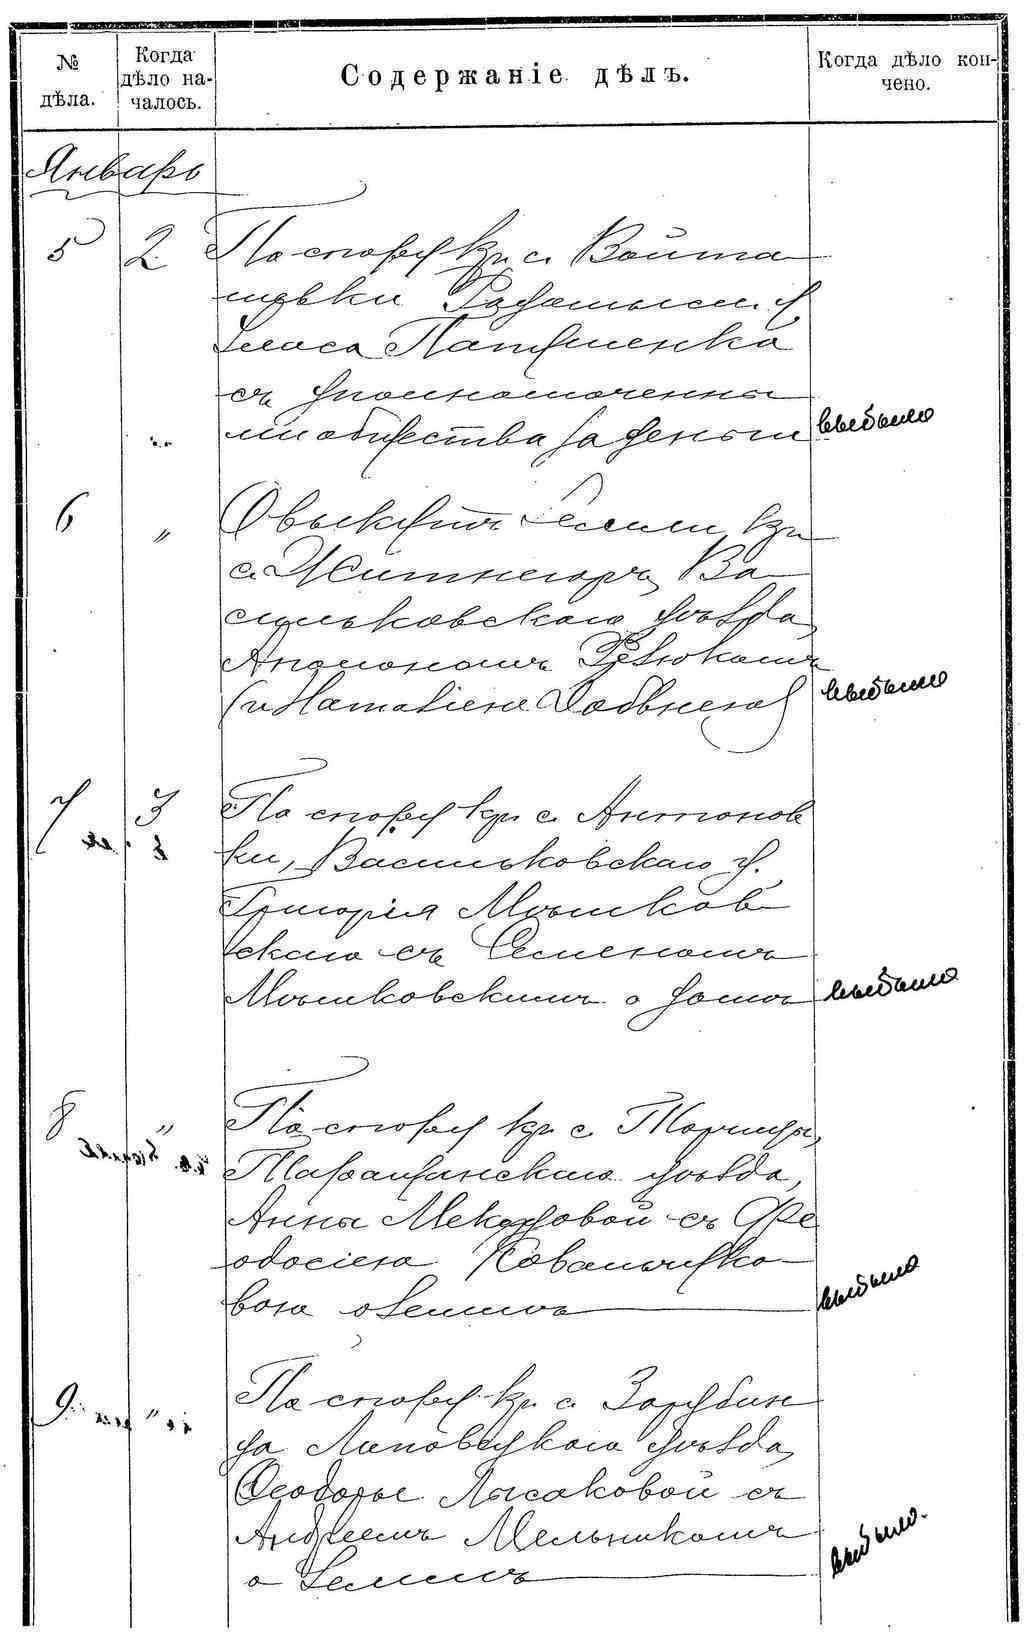 № дѣла.
Когда дѣло на-
чалось.
Содержаніе дѣлъ.
Когда дѣло кон-
чено.
Январь
5 2 По спору кр. с. Войта
шовки Радомысл. у.
Власа Патушенка
съ уполномоченны
ми общества за деньги выбыло
6 „ О выкупѣ земли кр.
с. Житнегоръ, Ва
сильковскаго уѣзда,
Аполономъ Ревюкомъ
(у Наталіею Довбнею) выбыло
7 3 По спору кр. с. Антонов
ки, Васильковскаго у.
Григорія Мѣшков
скаго съ Семеномъ
Мѣшковскимъ о домѣ выбыло
8 „ По спору кр. с. Торчицы,
Таращанскаго уѣзда,
Анны съ Фе
одосіею Ковальчуко
вою о землѣ выбыло
9 „ По спору кр. с. Зарубин
ца Липовецкаго уѣзда,
Феодоры Лысаковой съ
Андреемъ Мельникомъ
о землѣ выбыло.